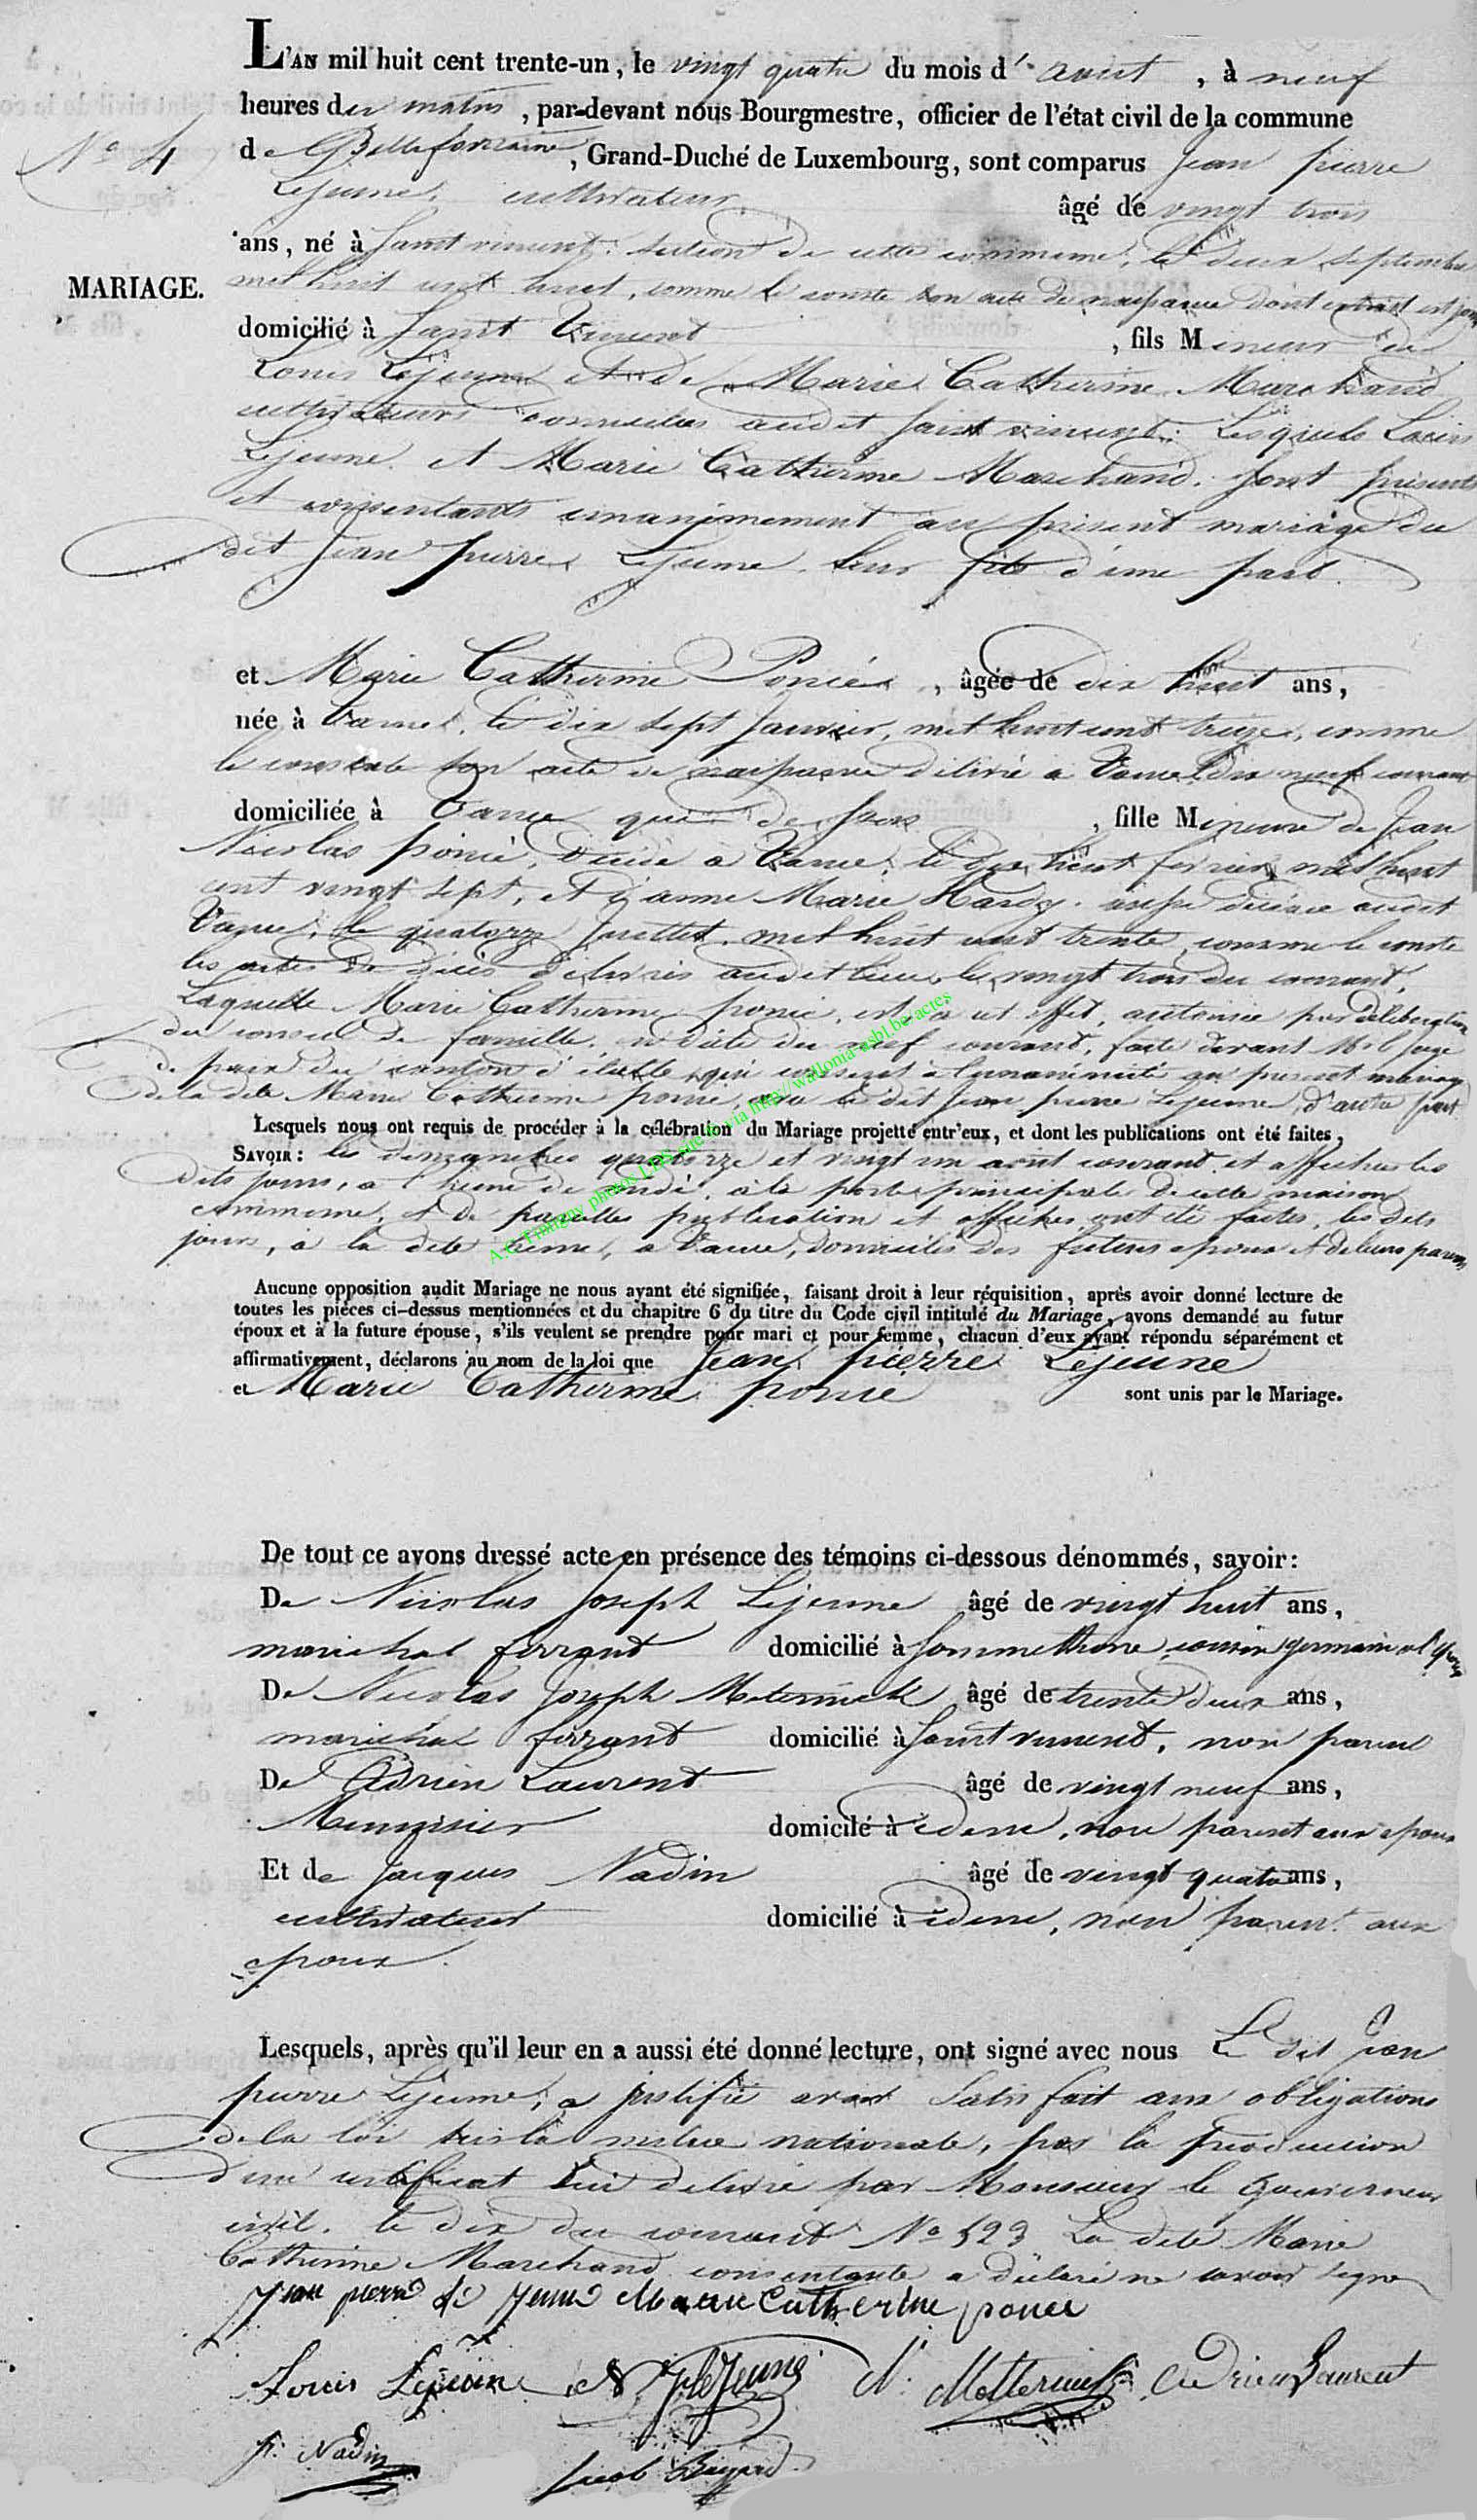 L'AN mil huit cent trente-un, le vingt quatre du mois d' aout, à neuf
heures du matin, par-devant nous Bourgmestre, officier de l'état civil de la commune
N° 4
de Bellefontaine, Grand-Duché de Luxembourg, sont comparus Jean pierre
Lejeune, cultivateur âgé de vingt trois
ans, né à Saint vincent, section de cette commune, le deux septembre
MARIAGE.
mil huit cent huit, comme le conste son acte de naissance dont extrait est
domicilié à Saint Vincent, fils Mineur de
Louis Lejeune et de Marie Catherine Marchand
cultivateurs domiciliés audit Saint vincent: Lesquels Louis
Lejeune et Marie Catherine Marchand, sont présents
et consentants unanimement au présent mariage du
dit Jean pierre Lejeune, leur fils d'une part.
et Marie Catherine Poncé, âgée de dix huit ans,
née à Vance, le dix sept Janvier, mil huit cent treize, comme
le constate son acte de naissance délivré à Vance, dix neuf courant
domiciliée à Vance, fille Mineure de Jean
Nicolas poncé, décédé à Vance, le dix huit février mil huit
cent vingt sept, et d'anne Marie Hardy, aussi décédée audit
Vance, le quatorze Juillet, mil huit cent trente, comme le conste
les actes de décès délivrés audit lieu, le vingt trois du courant,
Laquelle Marie Catherine poncé, est à cet effet, autorisée par délibération
du conseil de famille, en date du neuf courant, faite devant Mr le Juge
de paix du canton d'étalle, qui consent à l'unanimité au présent mariage
de la dite Marie Catherine poncé, avec le dit Jean pierre Lejeune, d'autre part
Lesquels nous ont requis de procéder à la célébration du Mariage projetté entr'eux, et dont les publications ont été faites,
SAVOIR: les dimanches quatorze et vingt un aout courant et affichées les
dits jours, à l'heure de midi, à la porte principale de cette maison
commune, et de pareilles publication et affiches ont été faites, les dits
jours, à la dite heure, à Vance, domiciles des futurs epoux et de leurs parens
A.G. Tintigny photos LDS site le via http://wallonia-asbl.be-actes
Aucune opposition audit Mariage ne nous ayant été signifiée, faisant droit à leur réquisition, après avoir donné lecture de
toutes les pièces ci-dessus mentionnées et du chapitre 6 du titre du Code civil intitulé du Mariage, avons demandé au futur
époux et à la future épouse, s'ils veulent se prendre pour mari et pour femme, chacun d'eux ayant répondu séparément et
affirmativement, déclarons au nom de la loi que Jean pierre Lejeune
et Marie Catherine poncé sont unis par le Mariage.
De tout ce avons dressé acte en présence des témoins ci-dessous dénommés, savoir:
De Nicolas Joseph Lejeune âgé de vingt huit ans,
maréchal ferrant domicilié à Sommethone, cousin germain
De Nicolas Joseph Meternick âgé de trente deux ans,
maréchal ferrant domicilié à Saint vincent, non parent
De Adrien Laurent âgé de vingt neuf ans,
Menuisier domicilié à idem, non parent aux epoux
Et de Jacques Nadin âgé de vingt quatre ans,
cultivateur domicilié à idem, non parent aux
epoux.
Lesquels, après qu'il leur en a aussi été donné lecture, ont signé avec nous Le dit Jean
pierre Lejeune, a justifié avoir satisfait aux obligations
de la loi sur la milice nationale, par la production
d'un certificat lui délivré par Monsieur le Gouverneur
civil, le dix du courant N° 523 La dite Marie
Catherine Marchand consentante a déclaré ne savoir signer
Jean pierre le Jeune Marie Catherine poncé
Louis Lejeune N Jh leJeune N. Metternick Adrien Laurent
J. Nadin Jacob